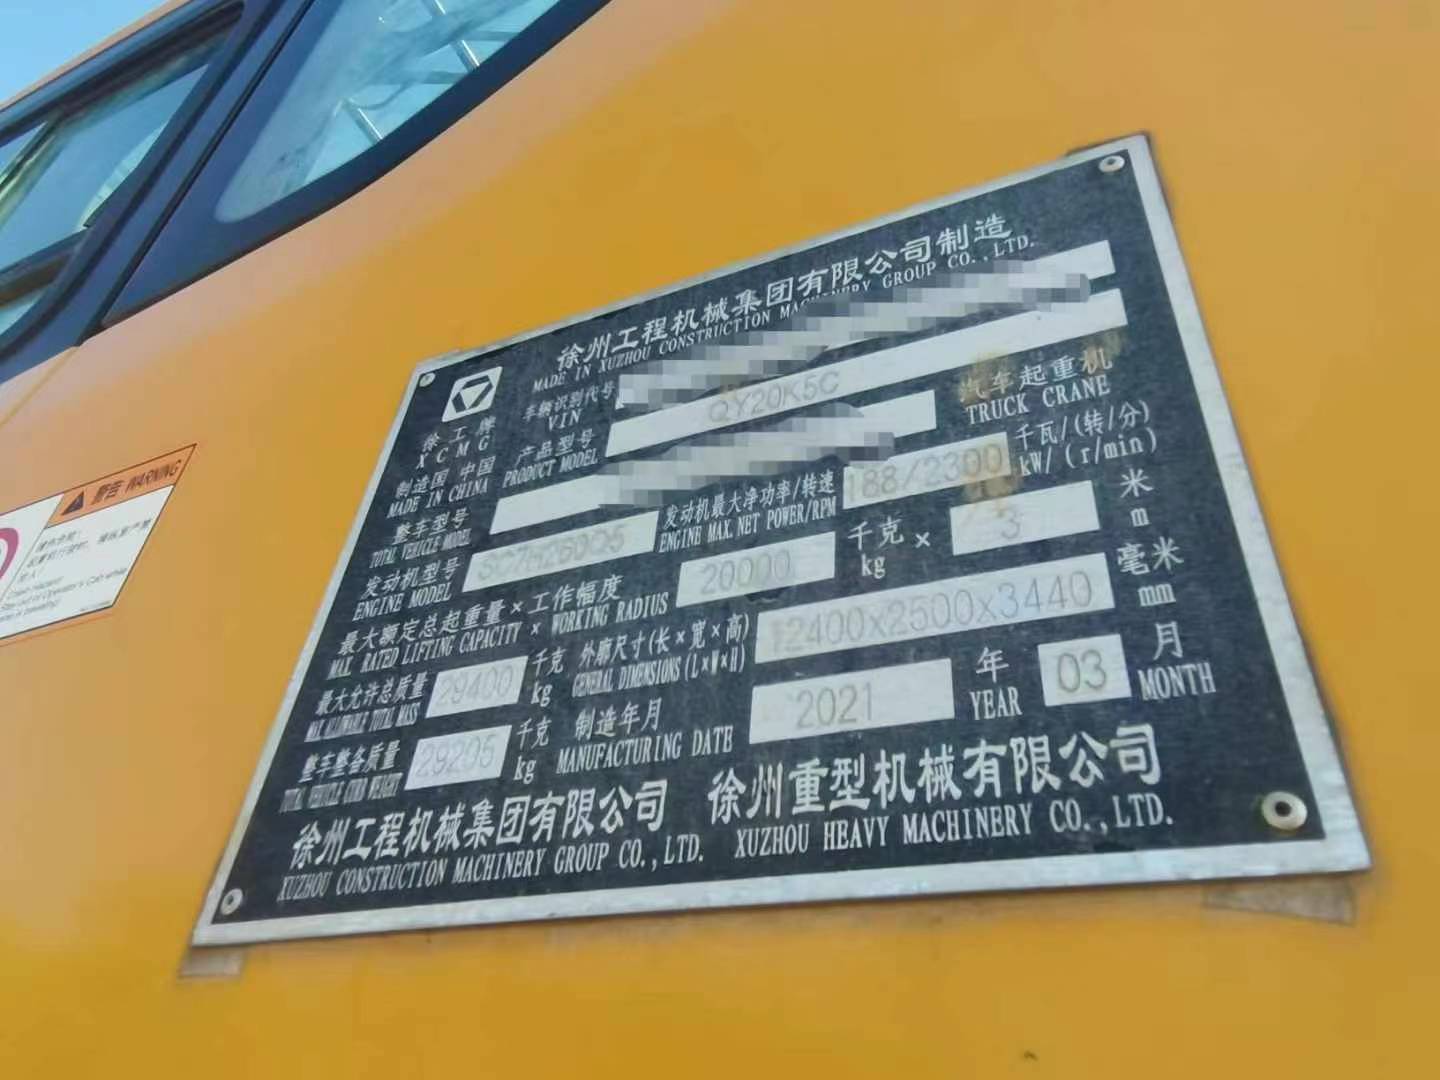 徐州工程机械集团有限公司制造
MADE IN XUZHOU CONSTRUCTION MACHINERY GROUP CO.,LTD.
徐工牌
XCMG
车辆识别代号
VIN
制造国 中国
MADE IN CHINA
产品型号 QY20K5C 汽车起重机
PRODUCT MODEL TRUCK CRANE
整车型号
TOTAL VEHICLE MODEL
发动机型号 SC7H260Q5 发动机最大净功率/转速 188/2300 千瓦/(转/分)
ENGINE MODEL ENGINE MAX. NET POWER/RPM kW/ (r/min)
最大额定总起重量×工作幅度 20000 千克 × 3 米
MAX. RATED LIFTING CAPACITY × WORKING RADIUS kg m
最大允许总质量 29400 千克 外廓尺寸(长×宽×高) 12400x2500x3440 毫米
MAX. ALLOWABLE TOTAL MASS kg GENERAL DIMENSIONS(L×W×H) mm
整车整备质量 29205 千克 制造年月 2021 年 03 月
TOTAL VEHICLE CURB WEIGHT kg MANUFACTURING DATE YEAR MONTH
徐州工程机械集团有限公司 徐州重型机械有限公司
XUZHOU CONSTRUCTION MACHINERY GROUP CO.,LTD. XUZHOU HEAVY MACHINERY CO.,LTD.
警告 WARNING